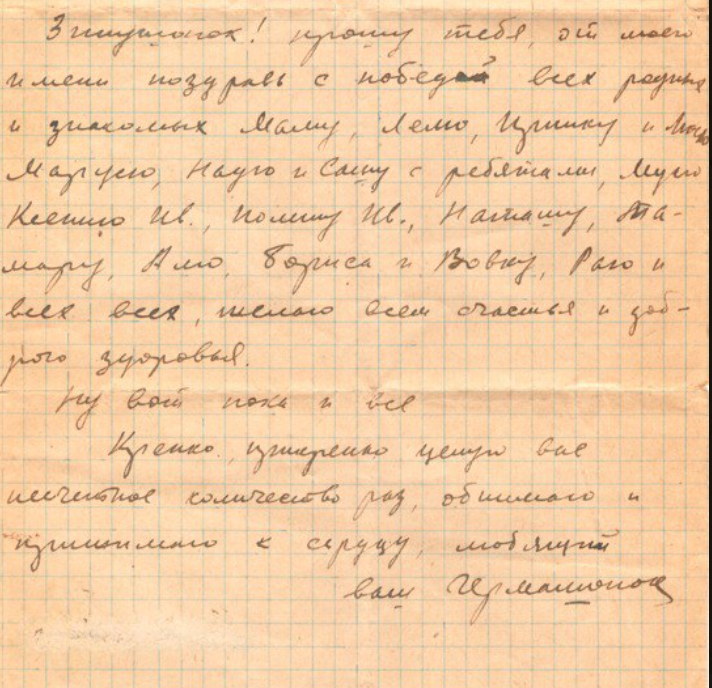 Зинушонок! прошу тебя, от моего
имени поздравь с победой всех родных
и знакомых Маму, Лелю, Иришку и
Марусю, Надю и Сашу с ребятами, Мусю
Ксению Ив., Полину Ив., Наташу, Та-
мару, Алю, Бориса и Вовку, Раю и
всех всех, желаю всем счастья и доб-
рого здоровья.
Ну вот пока и все
Крепко, искренно целую вас
несчетное количество раз, обнимаю и
прижимаю к сердцу, любящий
ваш Германонок